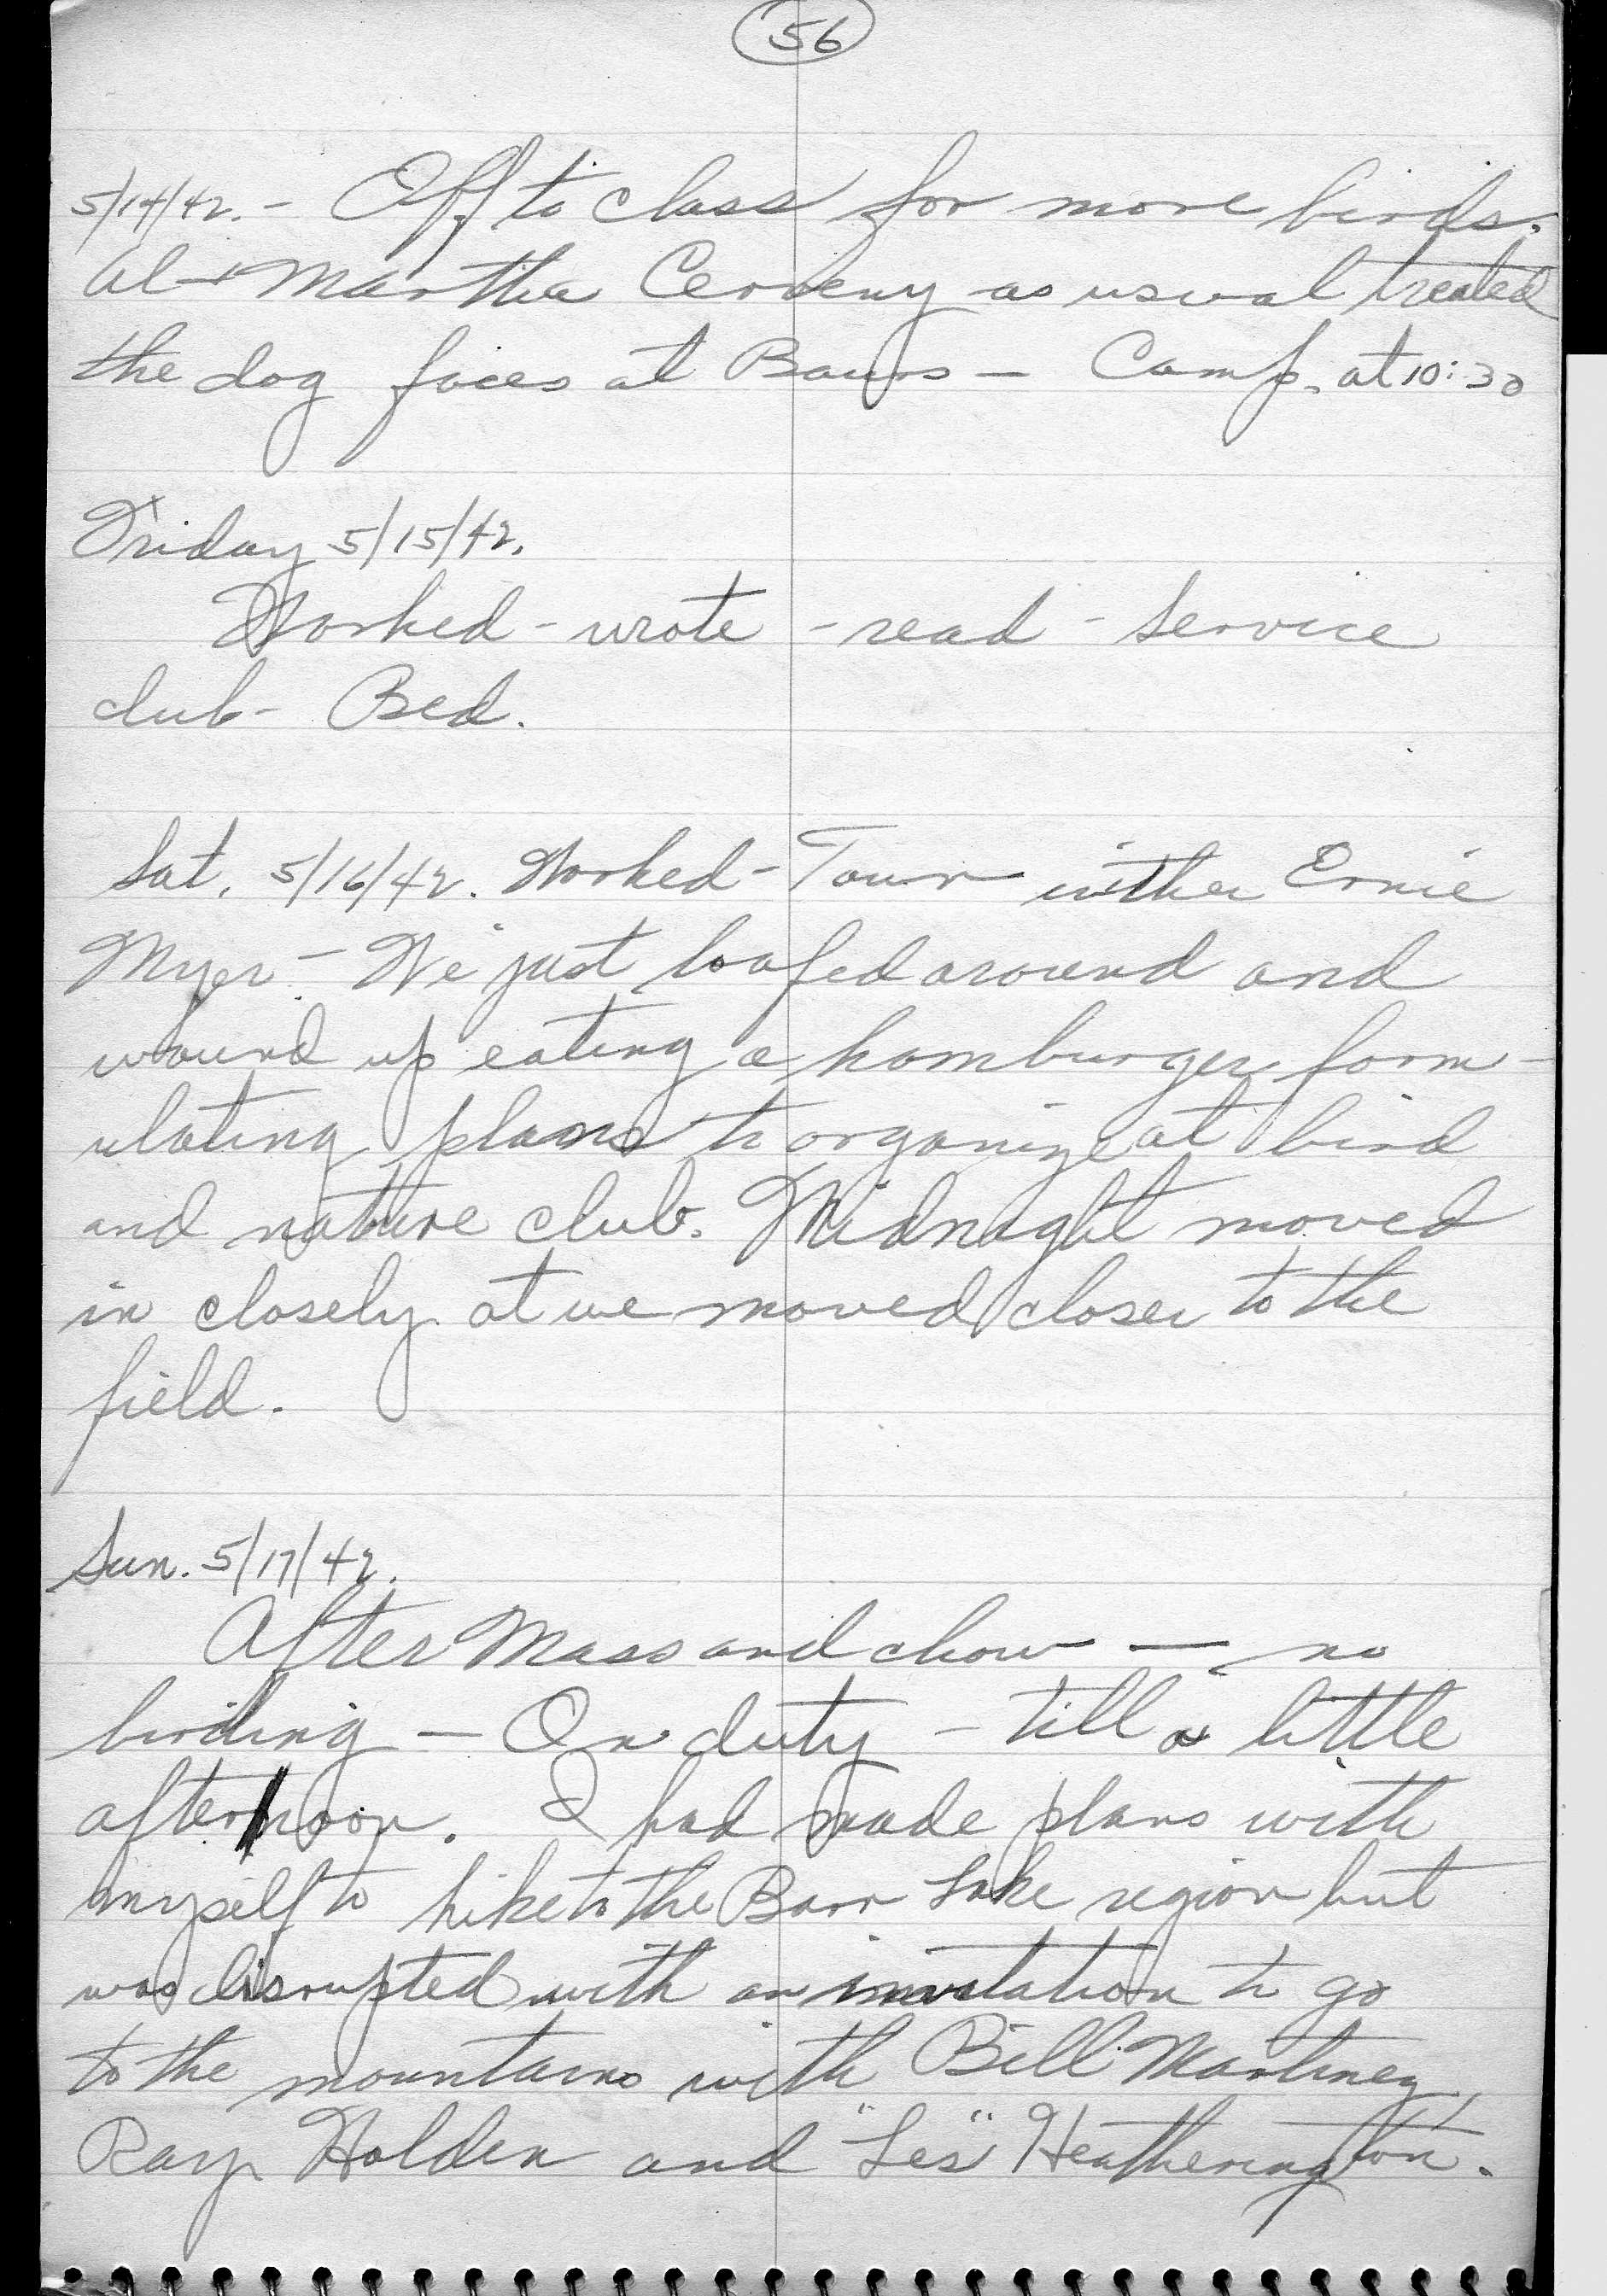 56
5/14/42. - Off to class for more birds.
Al + Martha Cerveny as usual treated
the dog faces at Baurs - Camp. at 10:30
Friday 5/15/42.
Worked - wrote - read - Service
club - Bed.
Sat. 5/16/42. Worked - Town with Ernie
Myer - We just loafed around and
wound up eating a hamburger form-
ulating plans to organize at bird
and nature club. Midnight moved
in closely at we moved closer to the
field.
Sun. 5/17/42.
After Mass and chow — no
birding — On duty - till a little
after noon. I had made plans with
myself to hike to the Barr Lake region but
was disrupted with an invitation to go
to the mountains with Bill Martiney,
Ray Holden and "Les" Heatherington.